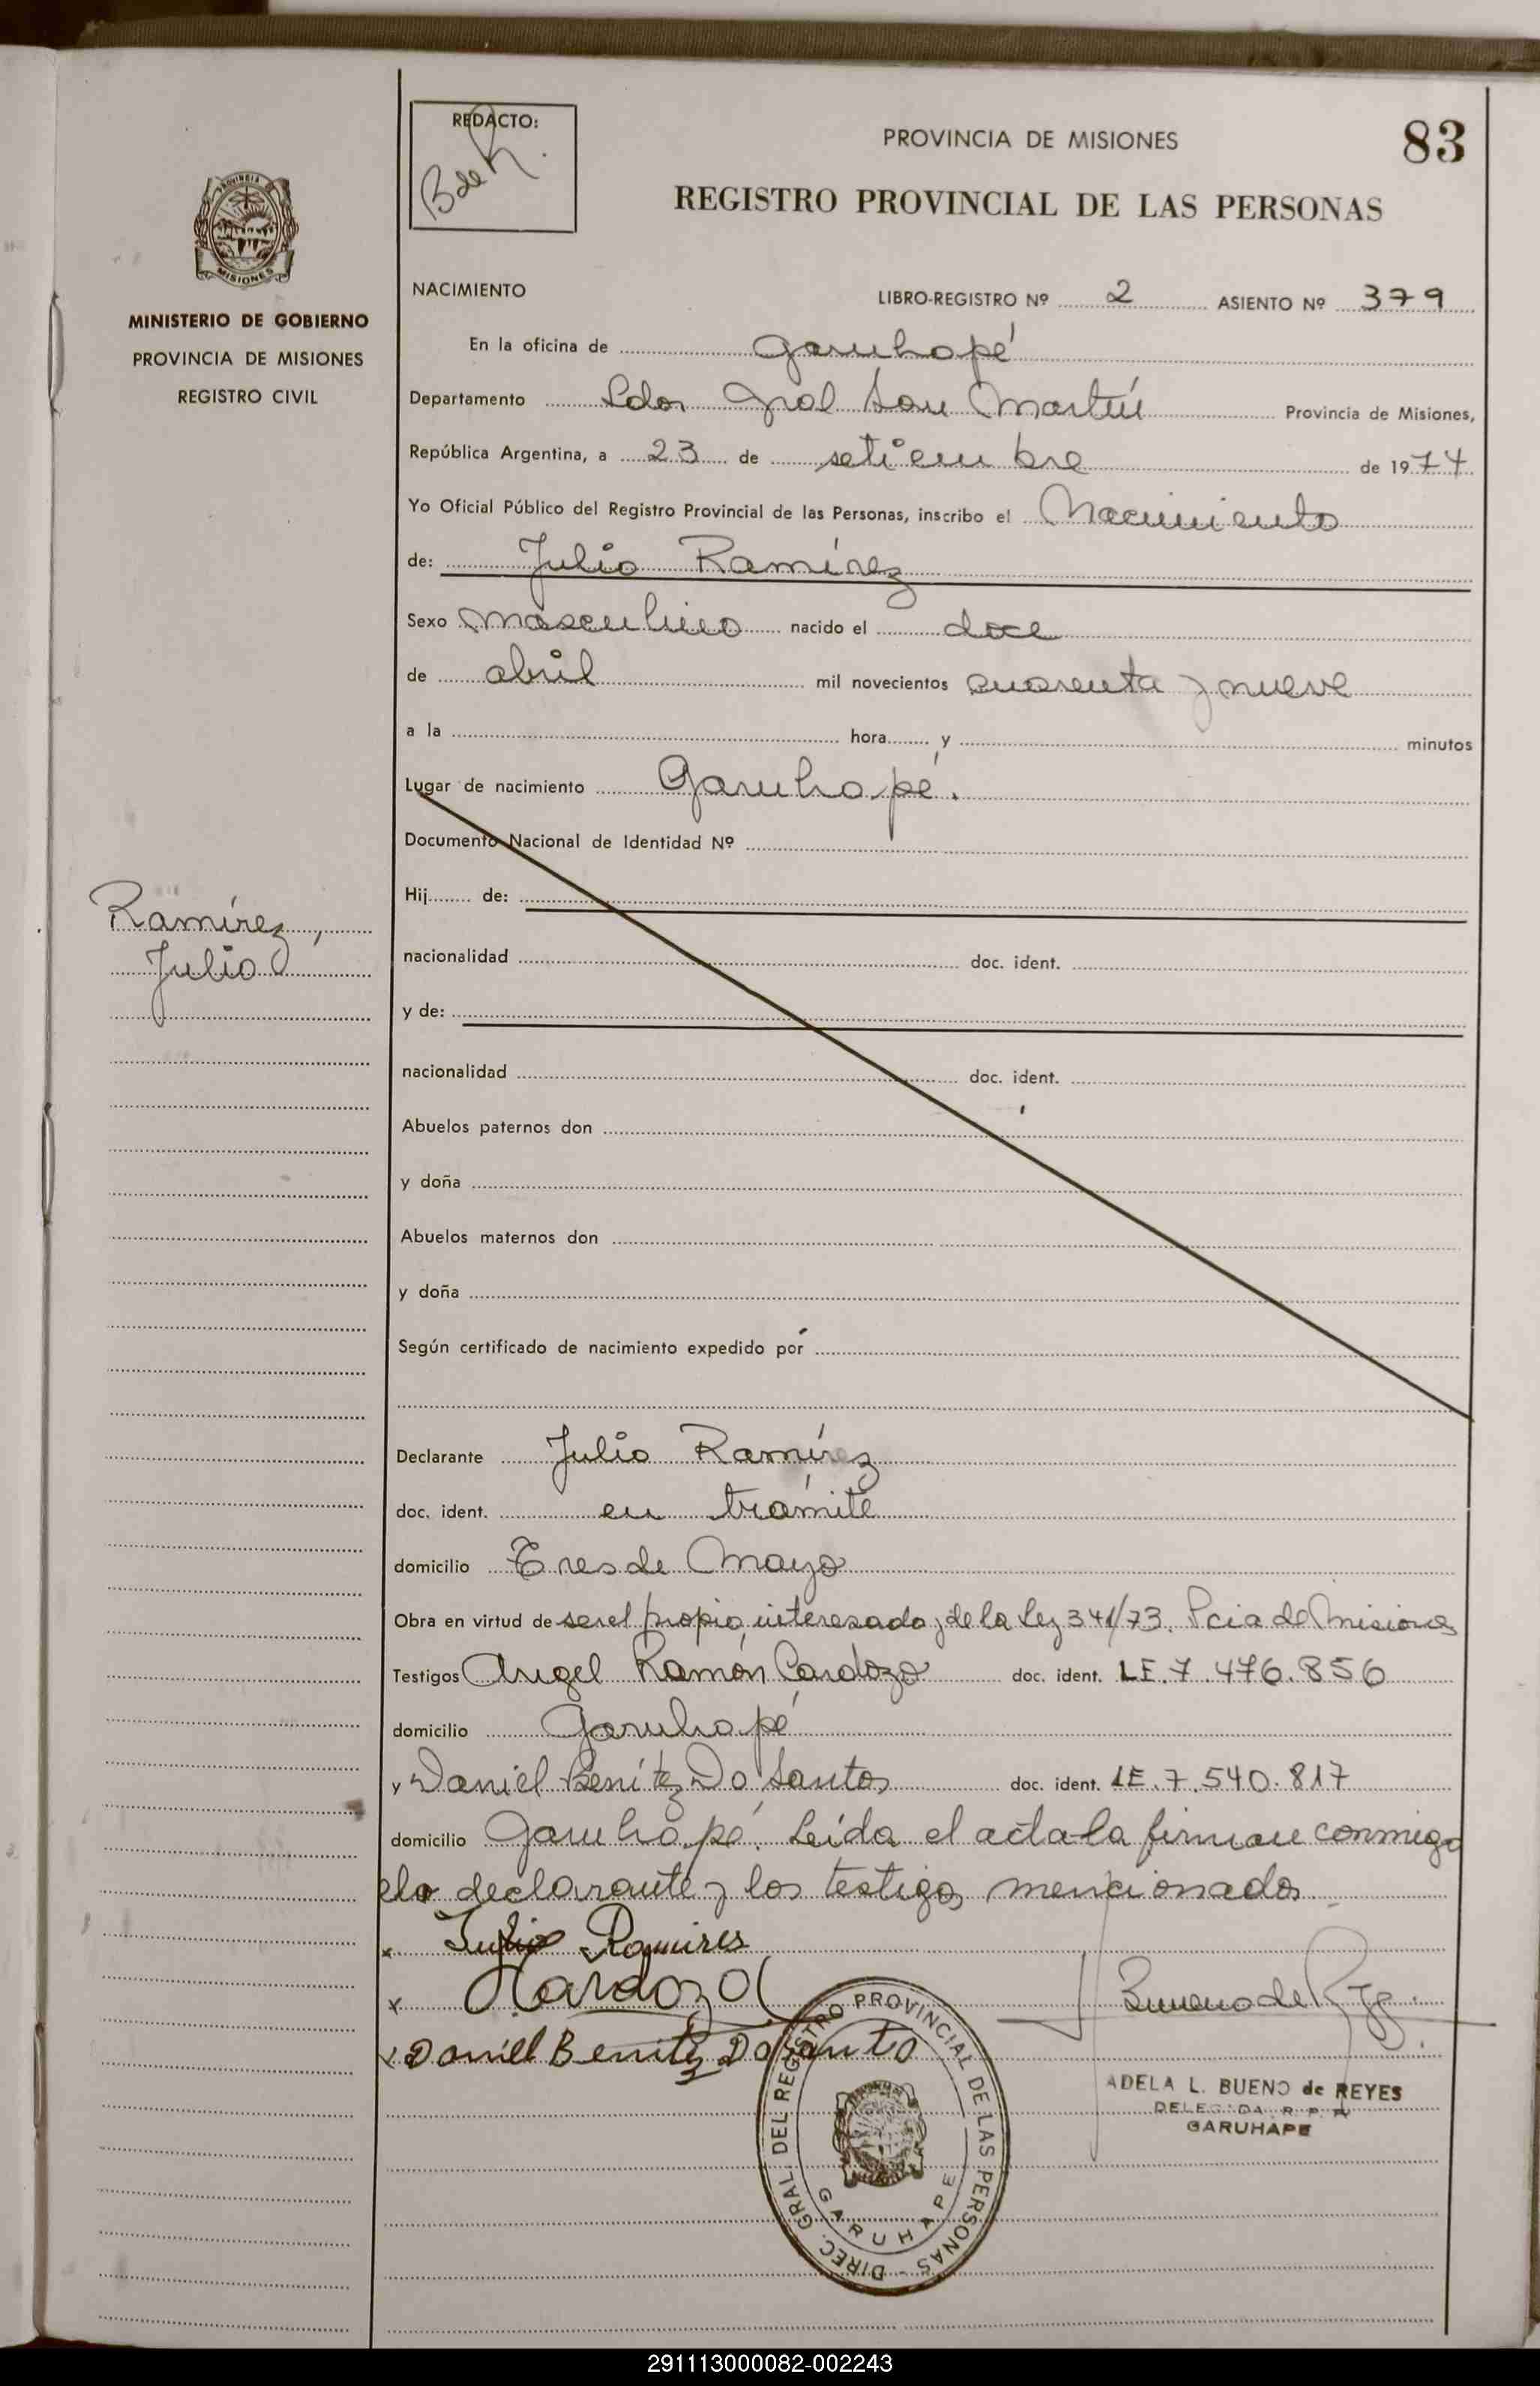 REDACTO:
B de R.
PROVINCIA DE MISIONES
83
REGISTRO PROVINCIAL DE LAS PERSONAS
PROVINCIA
MISIONES
MINISTERIO DE GOBIERNO
PROVINCIA DE MISIONES
REGISTRO CIVIL
NACIMIENTO LIBRO-REGISTRO Nº 2 ASIENTO Nº 379
En la oficina de Garuhapé
Departamento Ldor Gral San Martín Provincia de Misiones,
República Argentina, a 23 de setiembre de 1974
Yo Oficial Público del Registro Provincial de las Personas, inscribo el Nacimiento
de: Julio Ramírez
Sexo masculino nacido el doce
de abril mil novecientos cuarenta y nueve
a la hora y minutos
Lugar de nacimiento Garuhapé.
Documento Nacional de Identidad Nº
Hij de:
Ramírez,
Julio
nacionalidad doc. ident.
y de:
nacionalidad doc. ident.
Abuelos paternos don
y doña
Abuelos maternos don
y doña
Según certificado de nacimiento expedido por
Declarante Julio Ramírez
doc. ident. en trámite
domicilio Tres de Mayo
Obra en virtud de ser el propio interesado y de la ley 341/73. Pcia de Misiones
Testigos Angel Ramón Cardozo doc. ident. LE.7.476.856
domicilio Garuhapé
y Daniel Benítez Do Santos doc. ident. LE.7.540.817
domicilio Garuhapé. Leída el acta la firman conmigo
el declarante y los testigos mencionados
x Julio Ramires
x Cardozo
x Daniel Benitez Do Santo
Bueno de Reyes
ADELA L. BUENO de REYES
DELEGADA R. P. P.
GARUHAPE
DIREC. GRAL. DEL REGISTRO PROVINCIAL DE LAS PERSONAS -
GARUHAPE
291113000082-002243